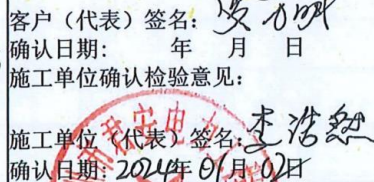 客户（代表）签名：
确认日期： 年 月 日
施工单位确认检验意见：
施工单位（代表）签名：李浩然
确认日期：2024年01月02日
市君安电力